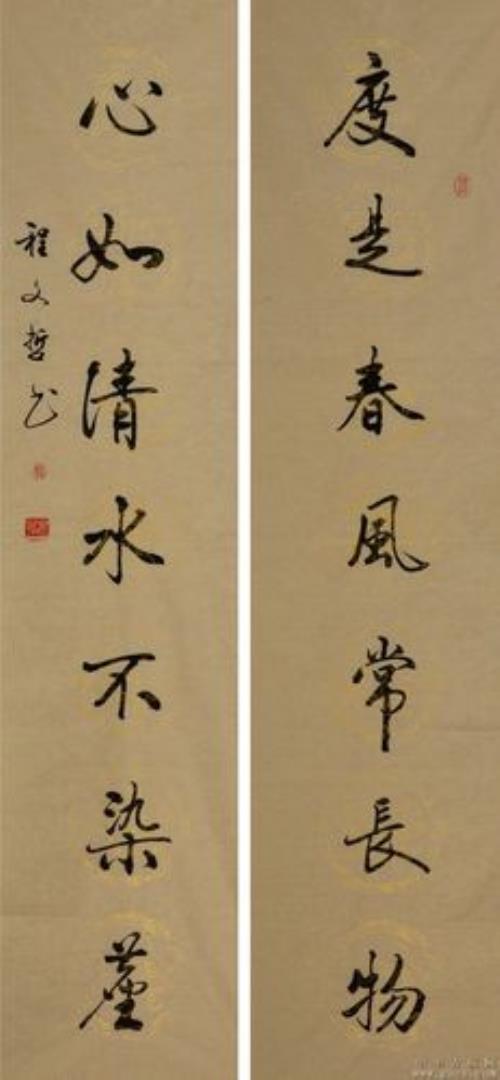 度是春風常長物
心如清水不染塵
程文哲书